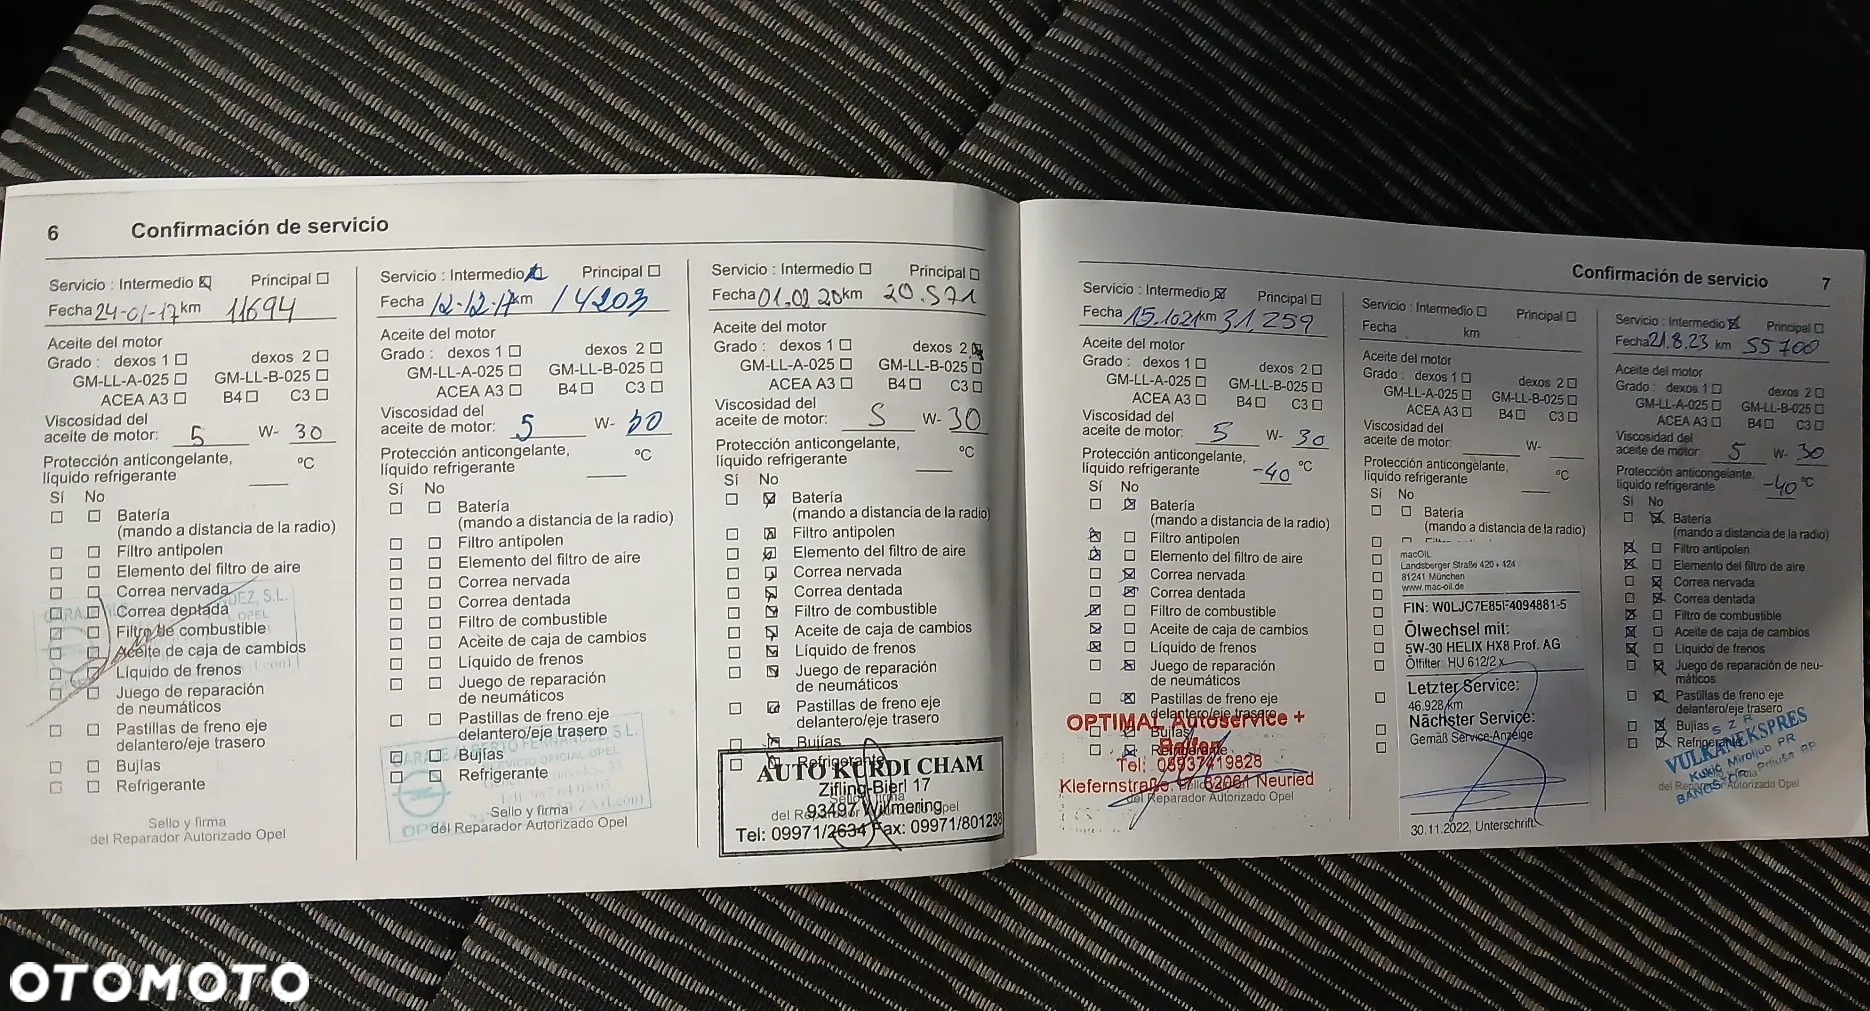 6 Confirmación de servicio
Servicio : Intermedio Principal
Fecha 24-01-17 km 11694
Aceite del motor
Grado : dexos 1 dexos 2
GM-LL-A-025 GM-LL-B-025
ACEA A3 B4 C3
Viscosidad del
aceite de motor: 5 W- 30
Protección anticongelante,
líquido refrigerante ºC
Sí No
Batería
(mando a distancia de la radio)
Filtro antipolen
Elemento del filtro de aire
Correa nervada
Correa dentada
Filtro de combustible
Aceite de caja de cambios
Líquido de frenos
Juego de reparación
de neumáticos
Pastillas de freno eje
delantero/eje trasero
Bujías
Refrigerante
Sello y firma
del Reparador Autorizado Opel
Servicio : Intermedio Principal
Fecha 12-12-17 km 14203
Aceite del motor
Grado : dexos 1 dexos 2
GM-LL-A-025 GM-LL-B-025
ACEA A3 B4 C3
Viscosidad del
aceite de motor: 5 W- 30
Protección anticongelante,
líquido refrigerante ºC
Sí No
Batería
(mando a distancia de la radio)
Filtro antipolen
Elemento del filtro de aire
Correa nervada
Correa dentada
Filtro de combustible
Aceite de caja de cambios
Líquido de frenos
Juego de reparación
de neumáticos
Pastillas de freno eje
delantero/eje trasero
Bujías
Refrigerante
Sello y firma
del Reparador Autorizado Opel
Servicio : Intermedio Principal
Fecha 01.02 20 km 20.571
Aceite del motor
Grado : dexos 1 dexos 2
GM-LL-A-025 GM-LL-B-025
ACEA A3 B4 C3
Viscosidad del
aceite de motor: 5 W- 30
Protección anticongelante,
líquido refrigerante ºC
Sí No
Batería
(mando a distancia de la radio)
Filtro antipolen
Elemento del filtro de aire
Correa nervada
Correa dentada
Filtro de combustible
Aceite de caja de cambios
Líquido de frenos
Juego de reparación
de neumáticos
Pastillas de freno eje
delantero/eje trasero
Bujías
Refrigerante
AUTO KURDI CHAM
Zifling-Bierl 17
93497 Wilmering
Tel: 09971/2634 Fax: 09971/801238
Confirmación de servicio 7
Servicio : Intermedio Principal
Fecha 15.1021 km 31,259
Aceite del motor
Grado : dexos 1 dexos 2
GM-LL-A-025 GM-LL-B-025
ACEA A3 B4 C3
Viscosidad del
aceite de motor: 5 W- 30
Protección anticongelante,
líquido refrigerante -40 ºC
Sí No
Batería
(mando a distancia de la radio)
Filtro antipolen
Elemento del filtro de aire
Correa nervada
Correa dentada
Filtro de combustible
Aceite de caja de cambios
Líquido de frenos
Juego de reparación
de neumáticos
Pastillas de freno eje
delantero/eje trasero
Bujías
Refrigerante
OPTIMAL Autoservice +
Tel: 08937419828
Klefernstraße. 82061 Neuried
del Reparador Autorizado Opel
Servicio : Intermedio Principal
Fecha km
Aceite del motor
Grado : dexos 1 dexos 2
GM-LL-A-025 GM-LL-B-025
ACEA A3 B4 C3
Viscosidad del
aceite de motor: W-
Protección anticongelante,
líquido refrigerante ºC
Sí No
Batería
(mando a distancia de la radio)
macOIL
Landsberger Straße 420 + 424
81241 München
www.mac-oil.de
FIN: W0LJC7E85F4094881-5
Ölwechsel mit:
5W-30 HELIX HX8 Prof. AG
Ölfilter: HU 612/2 x
Letzter Service:
46.928 km
Nächster Service:
Gemäß Service-Anzeige
30.11.2022, Unterschrift
Servicio : Intermedio Principal
Fecha 21.8.23 km 55700
Aceite del motor
Grado : dexos 1 dexos 2
GM-LL-A-025 GM-LL-B-025
ACEA A3 B4 C3
Viscosidad del
aceite de motor: 5 W- 30
Protección anticongelante,
líquido refrigerante -40 ºC
Sí No
Batería
(mando a distancia de la radio)
Filtro antipolen
Elemento del filtro de aire
Correa nervada
Correa dentada
Filtro de combustible
Aceite de caja de cambios
Líquido de frenos
Juego de reparación de neu-
máticos
Pastillas de freno eje
delantero/eje trasero
Bujías
Refrigerante
S Z R
VULKANEKSPRES
Miroljub PR
BANOŠTOR
OTOMOTO